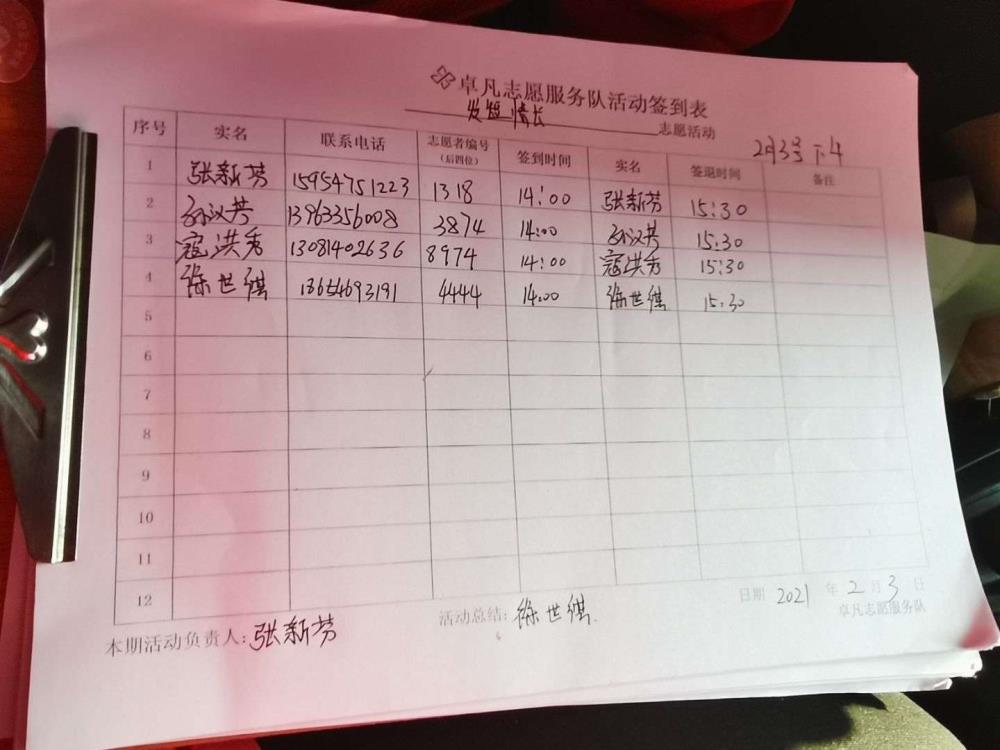 卓凡志愿服务队活动签到表
发短情长 志愿活动
2月3号下午
序号 实名 联系电话 志愿者编号(后四位) 签到时间 实名 签退时间 备注
1 张新芳 15954751223 1318 14:00 张新芳 15:30
2 孙汉芳 13963356008 3874 14:00 孙汉芳 15:30
3 寇洪秀 13081402636 8974 14:00 寇洪秀 15:30
4 徐世缤 13654693191 4444 14:00 徐世缤 15:30
5
6
7
8
9
10
11
12
日期 2021 年 2 月 3 日
本期活动负责人:张新芳 活动总结:徐世缤 卓凡志愿服务队